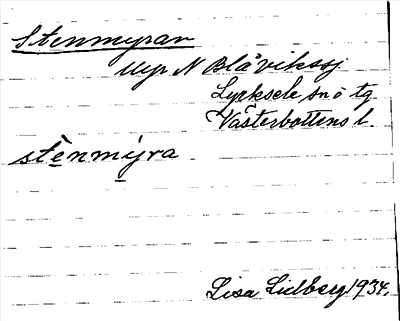 Stenmyran
myr N Blåviksj.
Lycksele snö tg
Västerbottens l.
stènmýra
Lisa Lidberg 1934.